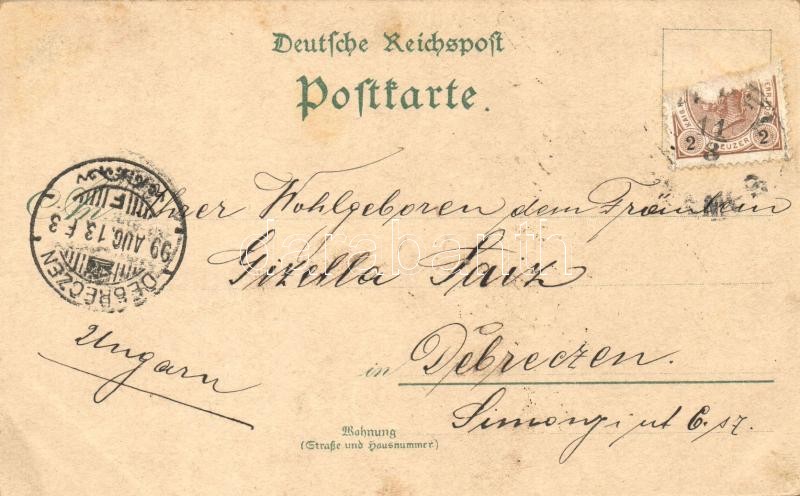 Deutsche Reichspost
Postkarte.
KREUZER
2 2
11
8
An Ihrer Wohlgeboren dem Fräulein
DEBRECZEN
99 AUG. 13. F 3
Gizella
Ungarn
in Debreczen.
Simonyi ut 6. sz.
Wohnung
(Straße und Hausnummer.)
darabanth